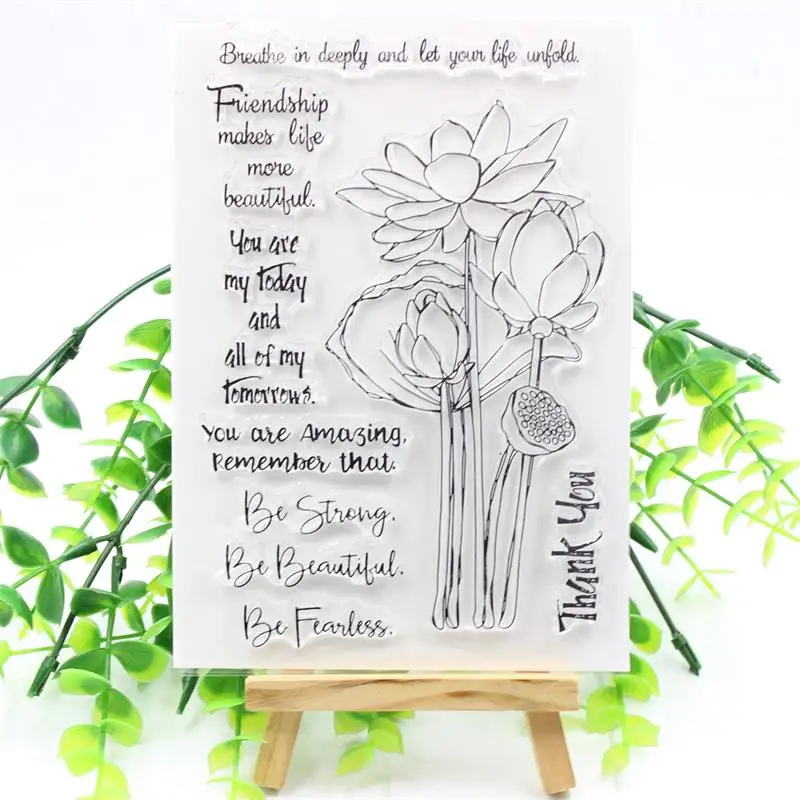 Breathe in deeply and let your life unfold.
Friendship
makes life
more
beautiful.
You are
my today
and
all of my
Tomorrows.
You are Amazing,
Remember that.
Be Strong.
Be Beautiful.
Be Fearless.
Thank You